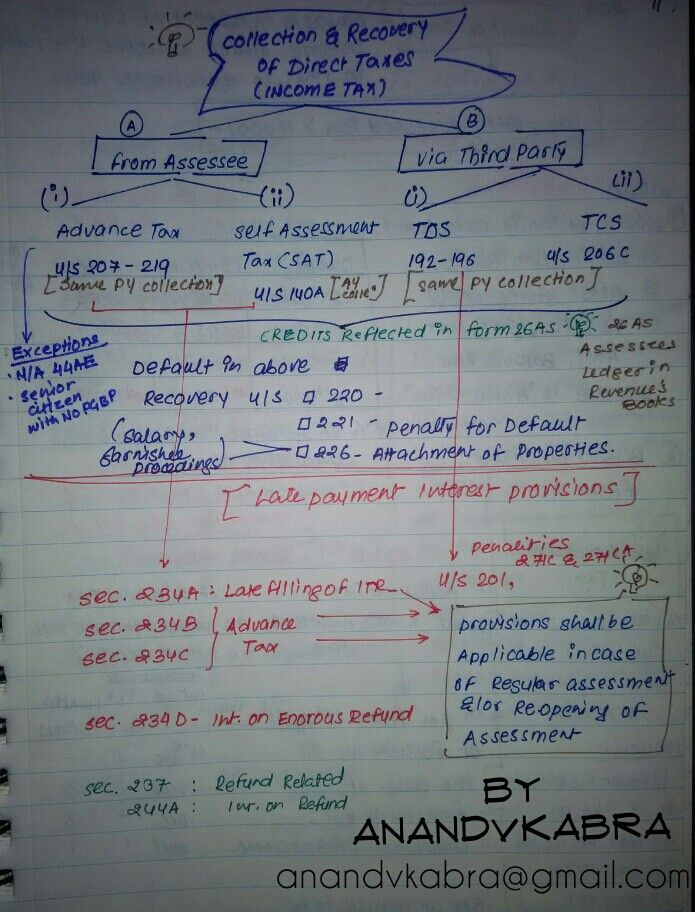 Collection & Recovery
of Direct Taxes
(INCOME TAX)
A
B
from Assessee
via Third Party
(i)
(ii)
(i)
(ii)
Advance Tax
Self Assessment
TDS
TCS
u/s 207-219
Tax (SAT)
192-196
u/s 206C
[Same PY collection]
u/s 140A
[AY colle"]
[same PY collection]
CREDITS Reflected in form 26AS
26AS
Assessees
Ledger in
Revenue's
Books
Exceptions
• N/A 44AE
• Senior
citizen
with NO PGBP
Default in above
Recovery u/s 220 -
221 - Penalty for Default
226 - Attachment of Properties.
(Salary,
Garnishee
Proceedings)
[Late payment Interest provisions]
Penalities
271C & 271CA
u/s 201,
sec. 234A : Late filling of ITR
sec. 234B
sec. 234C
Advance
Tax
provisions shall be
Applicable in case
of Regular assessment
&/or Reopening of
Assessment
sec. 234D - Int. on Enorous Refund
sec. 237 : Refund Related
244A : Int. on Refund
BY
ANANDVKABRA
anandvkabra@gmail.com